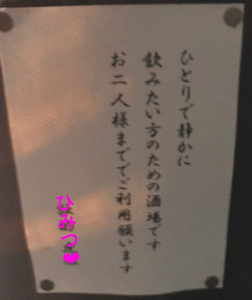 ひとりで静かに
飲みたい方のための酒場です
お二人様まででご利用願います
ひみつ❤